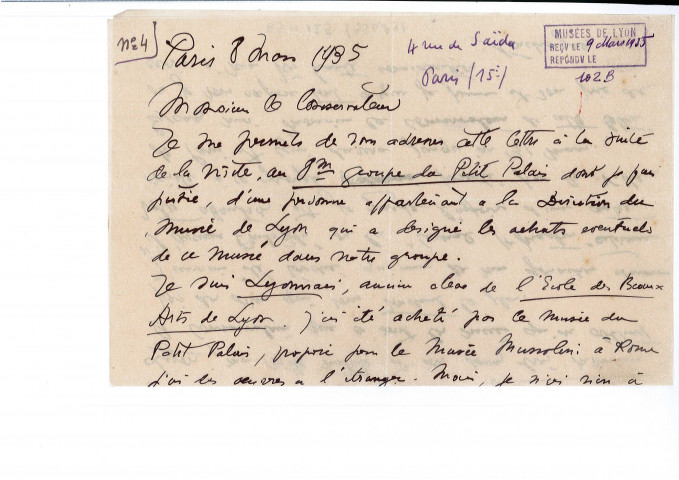 n°4
Paris 8 Mars 1935
4 rue de Saïda
Paris (15e)
MUSÉES DE LYON
REÇU LE 9 Mars 1935
RÉPONDU LE
102B
Monsieur le Conservateur
Je me permets de vous adresser cette lettre à la suite
de la visite, au 8me groupe du Petit Palais dont je fais
partie, d'une personne appartenant a la Direction du
Musée de Lyon qui a designé les achats eventuels
de ce musée dans notre groupe.
Je suis Lyonnais, ancien eleve de l'Ecole des Beaux
Arts de Lyon. j'ai été acheté par le musée du
Petit Palais, proposé pour le Musée Mussolini à Rome
j'ai des œuvres a l'étranger. Mais, je n'ai rien à